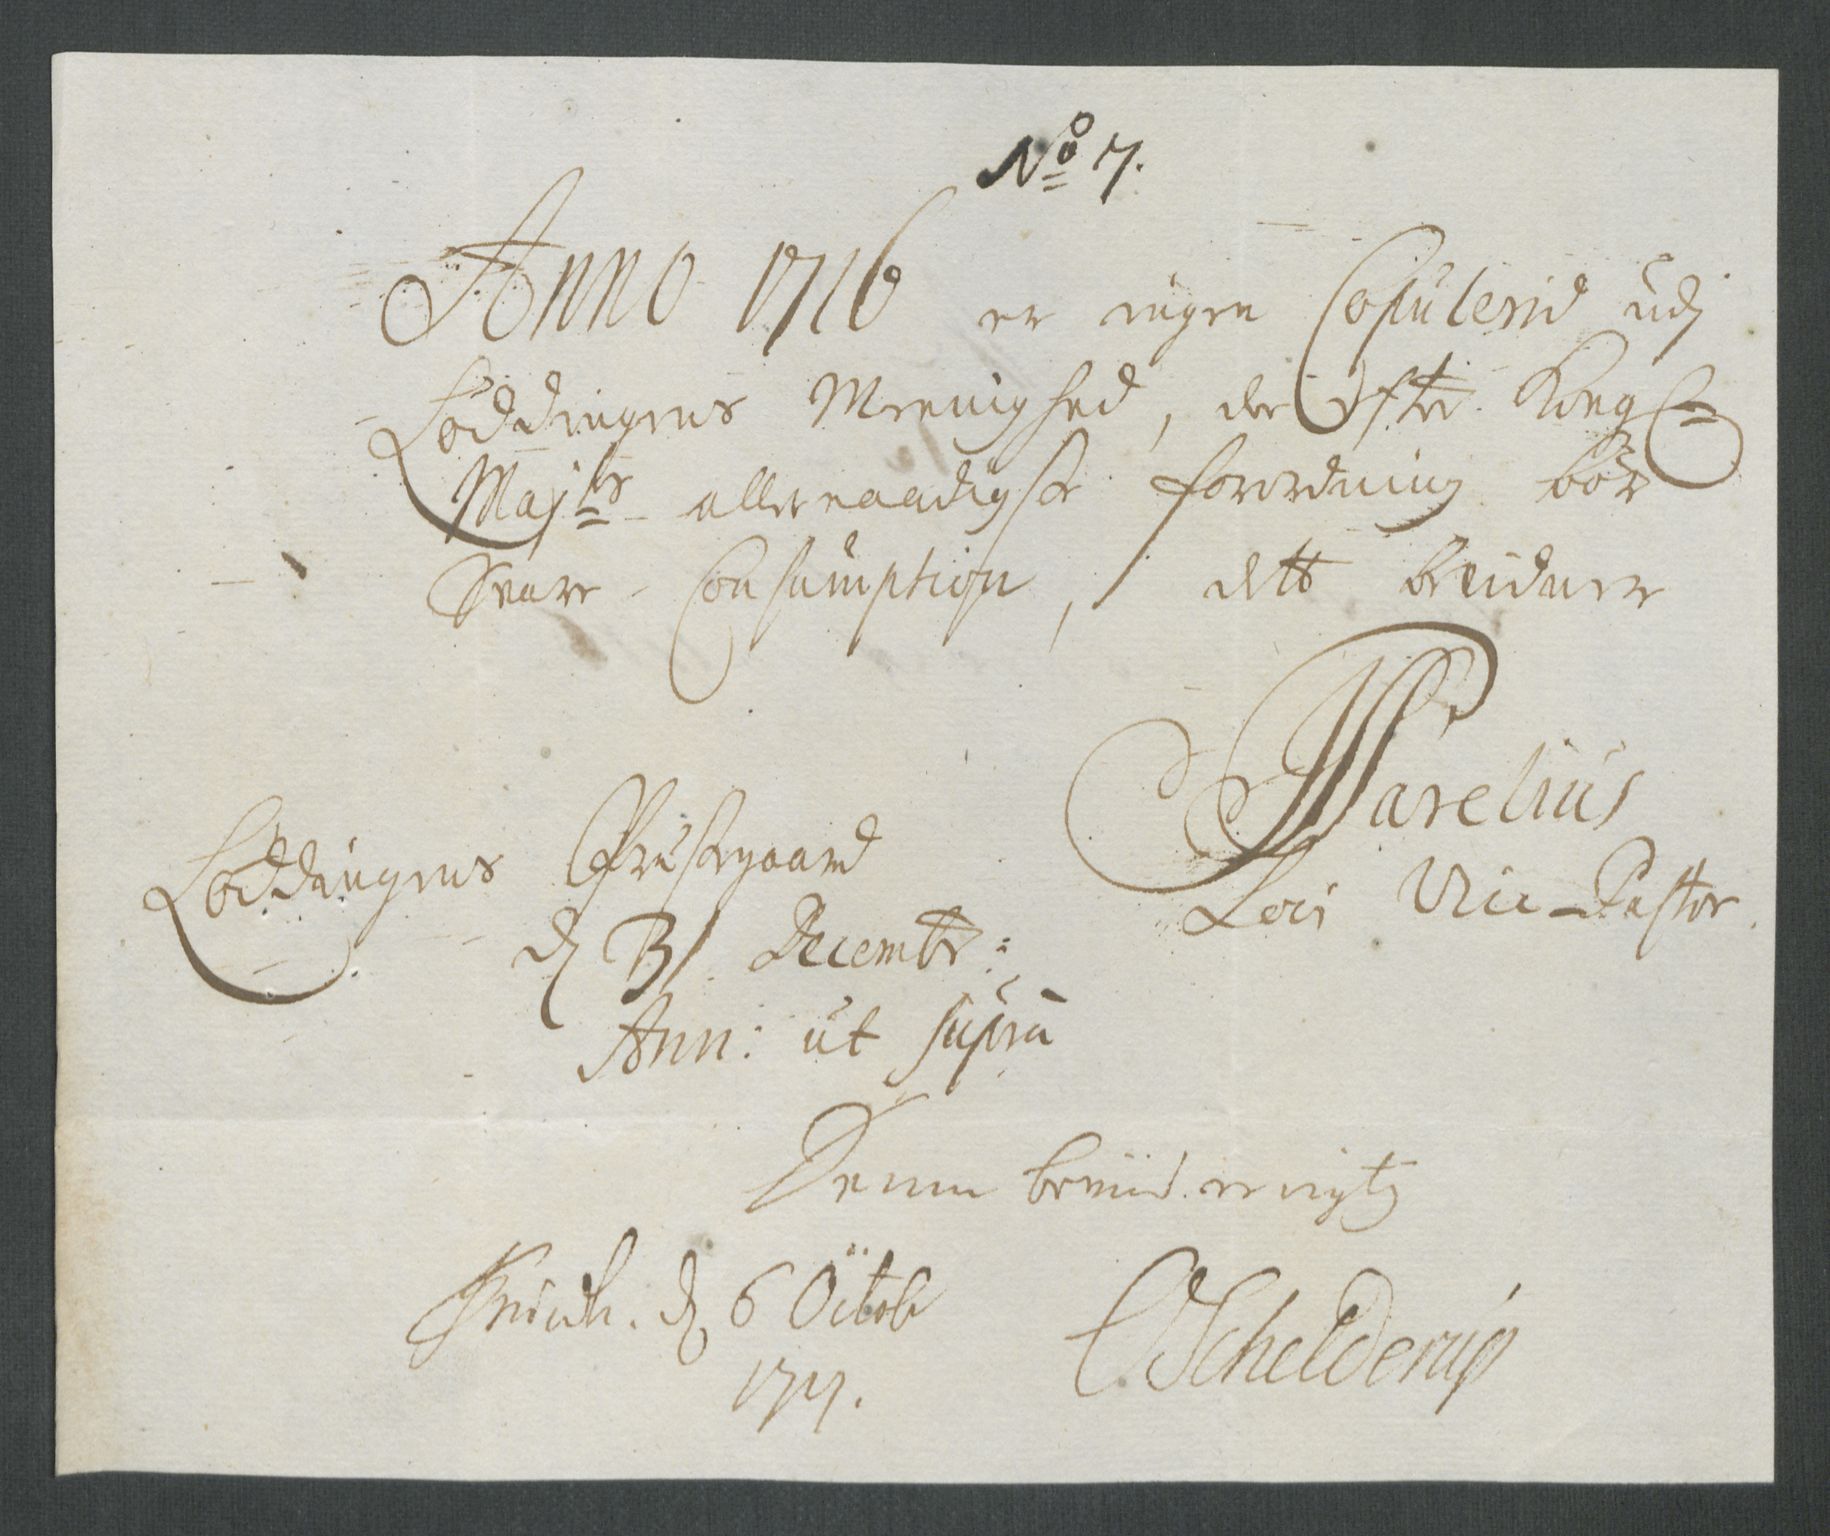 No 7.
Anno 1716 er ingen Copulerid udj
Loddingens Meenighed, der efter Kong
Majts allernaadigste forordning bör
Svare Consumption, dette beviduer
Parelius
Loci Vice-Pastor.
Loddingens Præstegaard
d 31 Decembr:
Ann: ut supra
Denne
d. 6 Octob
1717.
Schelderup